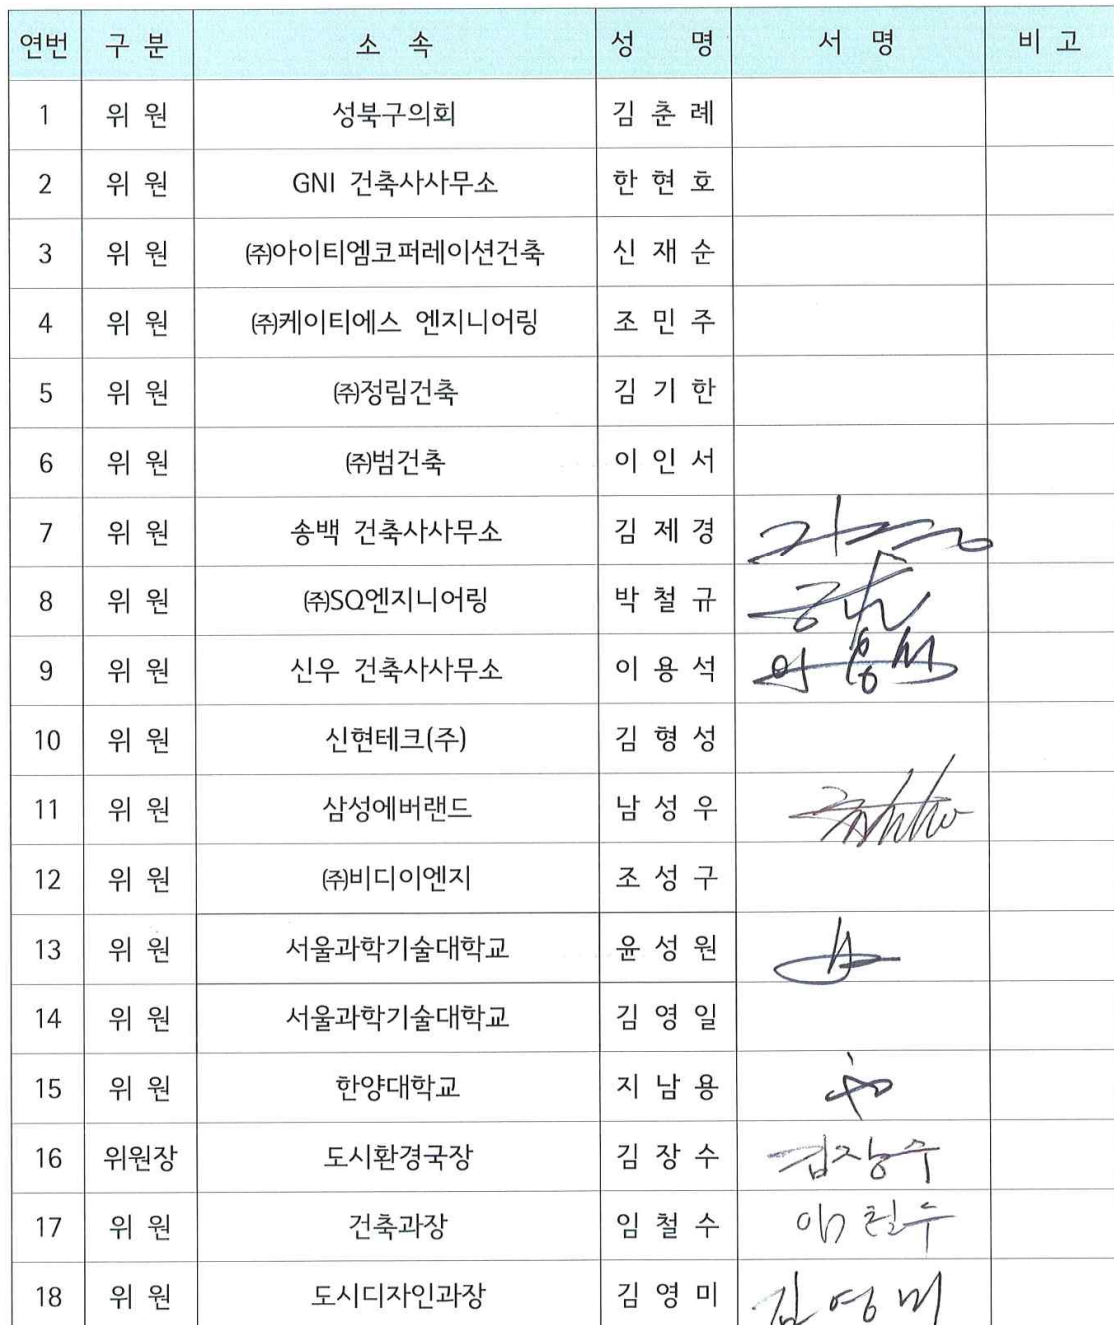 연번 구 분 소 속 성 명 서 명 비 고
1 위 원 성북구의회 김 춘 례
2 위 원 GNI 건축사사무소 한 현 호
3 위 원 ㈜아이티엠코퍼레이션건축 신 재 순
4 위 원 ㈜케이티에스 엔지니어링 조 민 주
5 위 원 ㈜정림건축 김 기 한
6 위 원 ㈜범건축 이 인 서
7 위 원 송백 건축사사무소 김 제 경
8 위 원 ㈜SQ엔지니어링 박 철 규
9 위 원 신우 건축사사무소 이 용 석
10 위 원 신현테크(주) 김 형 성
11 위 원 삼성에버랜드 남 성 우
12 위 원 ㈜비디이엔지 조 성 구
13 위 원 서울과학기술대학교 윤 성 원
14 위 원 서울과학기술대학교 김 영 일
15 위 원 한양대학교 지 남 용
16 위원장 도시환경국장 김 장 수 김장수
17 위 원 건축과장 임 철 수 임철수
18 위 원 도시디자인과장 김 영 미 김영미